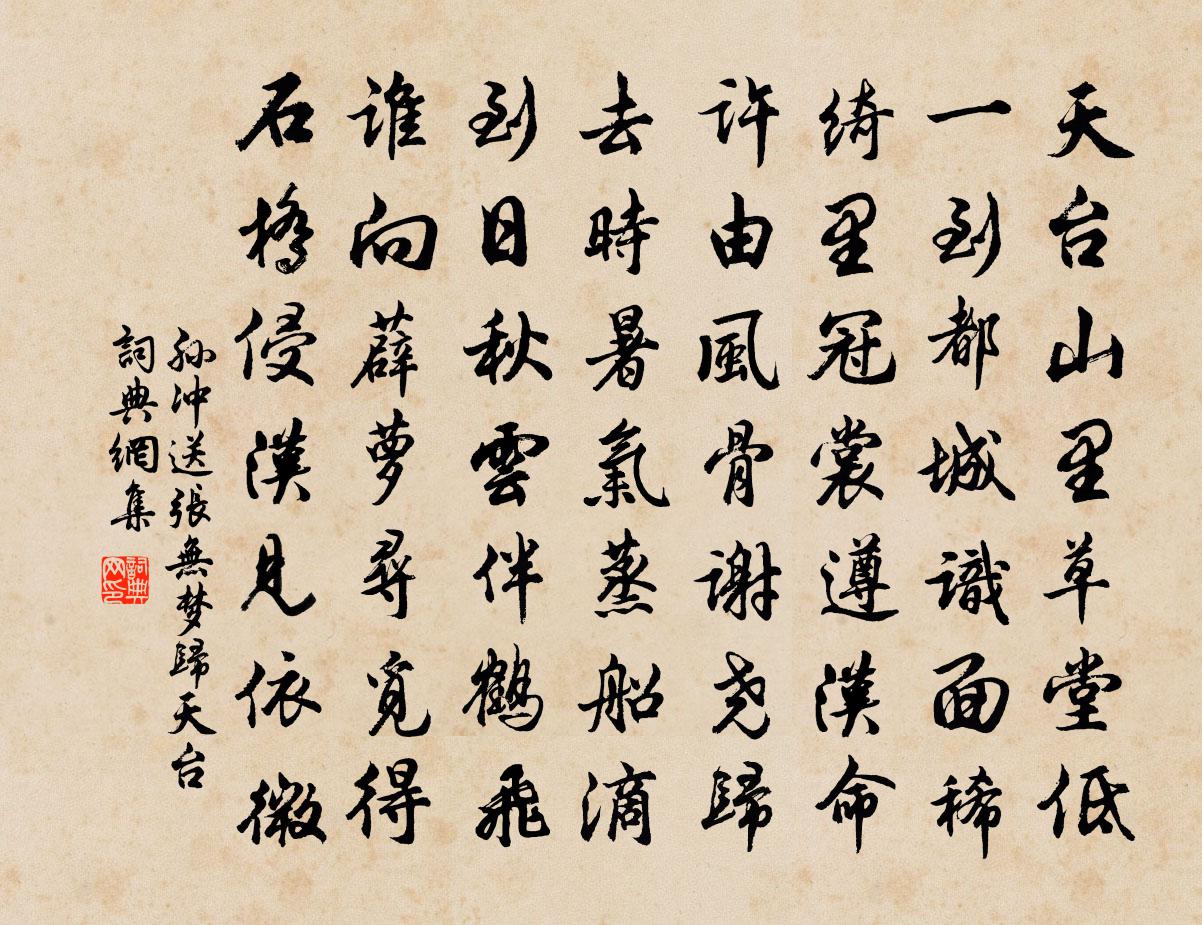 天台山里草堂低
一到都城識面稀
綺里冠裳遵漢命
許由風骨謝尧歸
去時暑氣蒸船滴
到日秋雲伴鶴飛
誰向薜萝尋覓得
石橋侵漢見依微
孙冲送張無梦歸天台
詞典網集
詞典网印